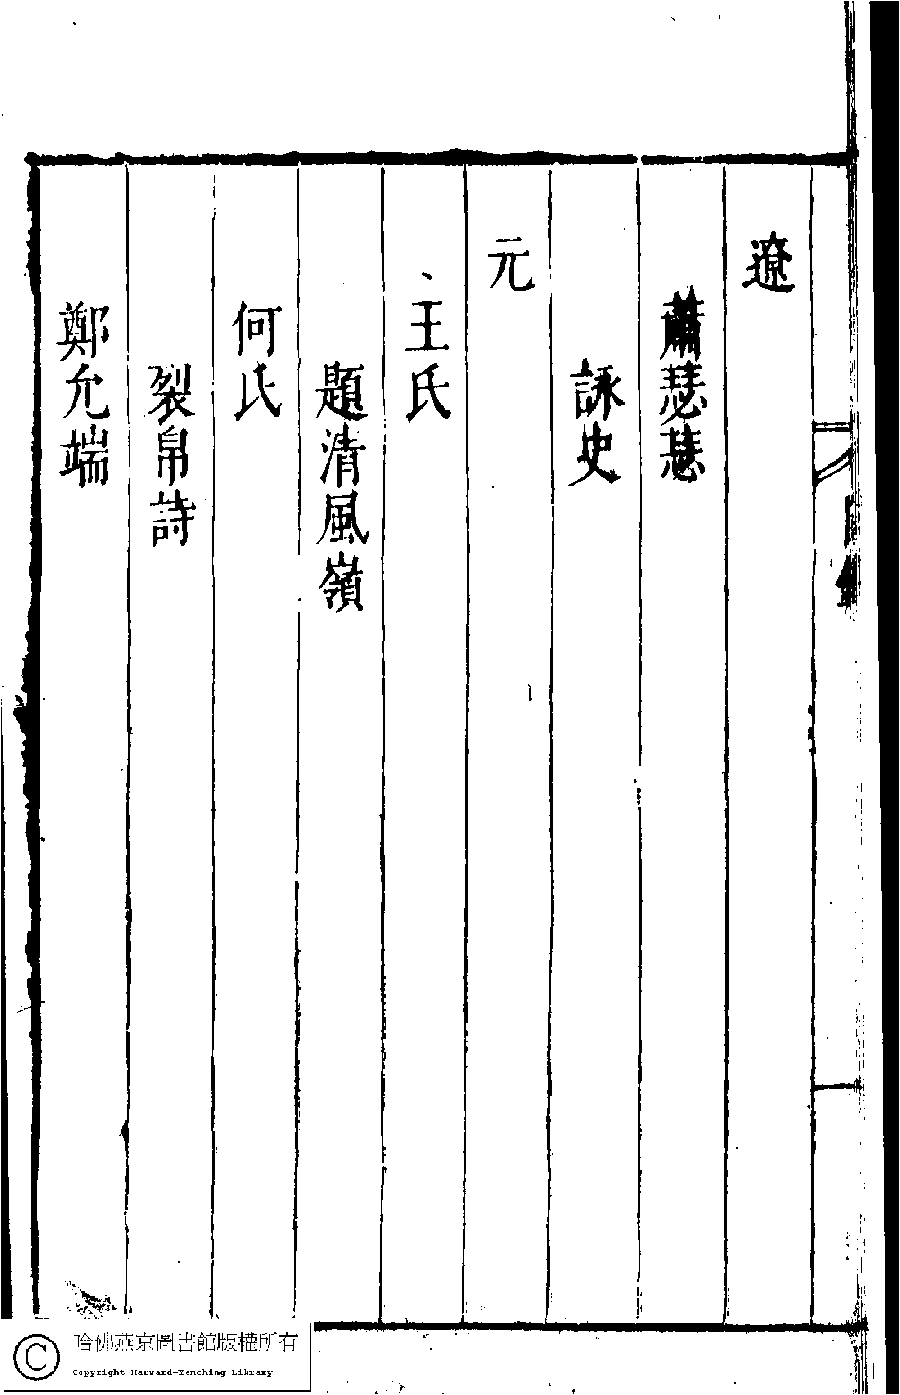 遼
蕭瑟瑟
詠史
元
王氏
題清風嶺
何氏
裂帛詩
鄭允端
哈佛燕京圖書館版權所有
Copyright Harvard-Yenching Library